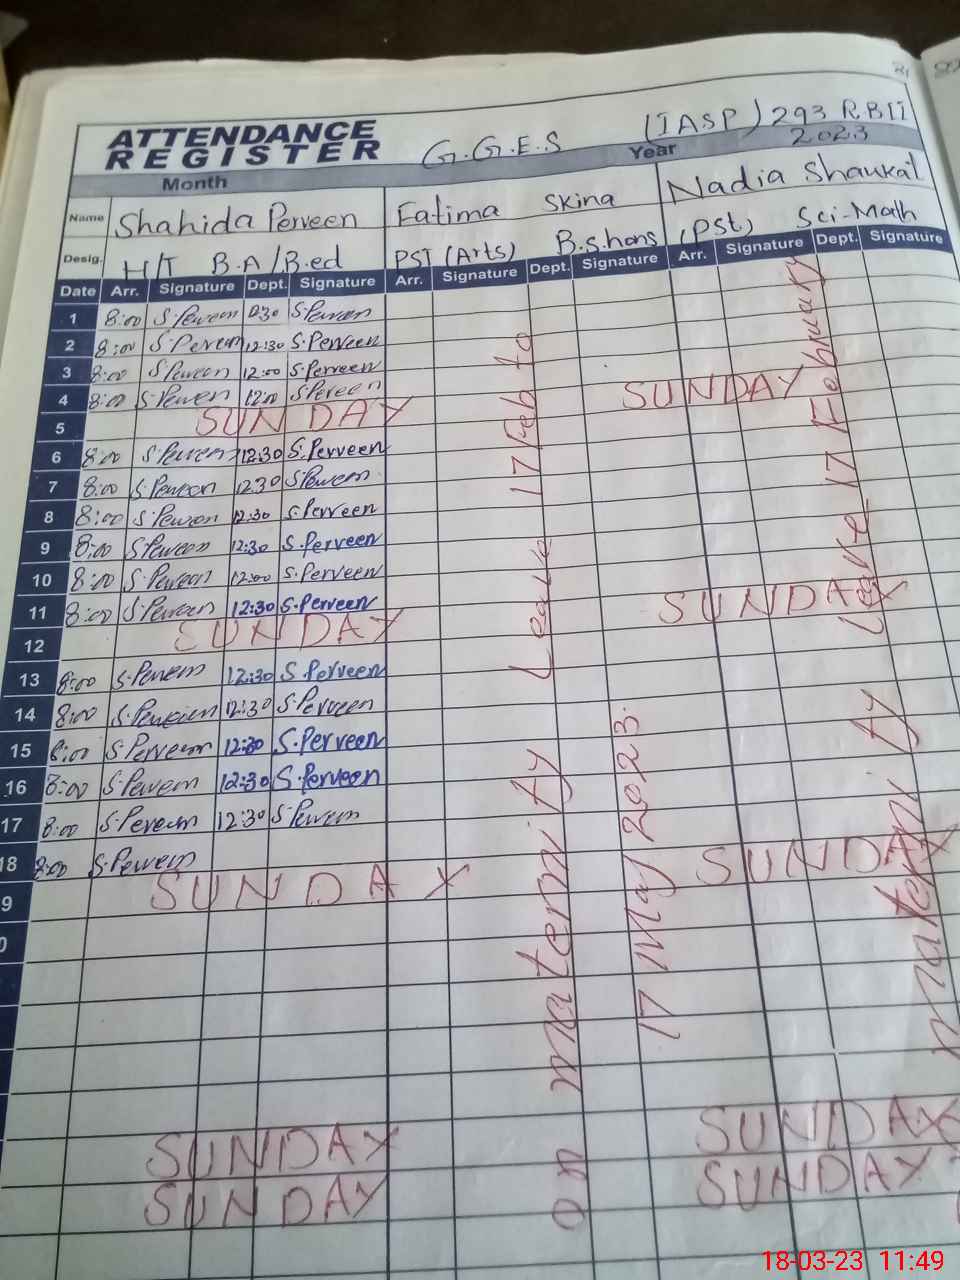 ATTENDANCE
REGISTER
G.G.E.S (IASP) 293 R.BII
Month Year 2023
Name Shahida Perveen Fatima Skina Nadia Shaukat
Desig. H/T B.A/B.ed PST (Arts) B.s.hons (Pst) Sci-Math
Date Arr. Signature Dept. Signature Arr. Signature Dept. Signature Arr. Signature Dept. Signature
1 8:00 S.Perveen S.Perveen
2 8:00 S.Perveen 12:30 S.Perveen
3 8:00 S.Perveen 12:00 S.Perveen
4 8:00 S.Perveen 12:00 S.Perveen SUNDAY
5 SUNDAY
6 8:00 S.Perveen 12:30 S.Perveen
7 8:00 S.Perveen 12:30 S.Perveen
8 8:00 S.Perveen 12:30 S.Perveen
9 8:00 S.Perveen 12:30 S.Perveen
10 8:00 S.Perveen 12:00 S.Perveen
11 8:00 S.Perveen 12:30 S.Perveen SUNDAY
12 SUNDAY
13 8:00 S.Perveen 12:30 S.Perveen
14 8:00 S.Perveen 12:30 S.Perveen
15 8:00 S.Perveen 12:30 S.Perveen
16 8:00 S.Perveen 12:30 S.Perveen
17 8:00 S.Perveen 12:30 S.Perveen
18 8:00 S.Perveen SUNDAY
9 SUNDAY
0
SUNDAY SUNDAY
SUNDAY SUNDAY
on maternity Leave 17 Feb to
17 May 2023.
maternity Leave 17 February
18-03-23 11:49